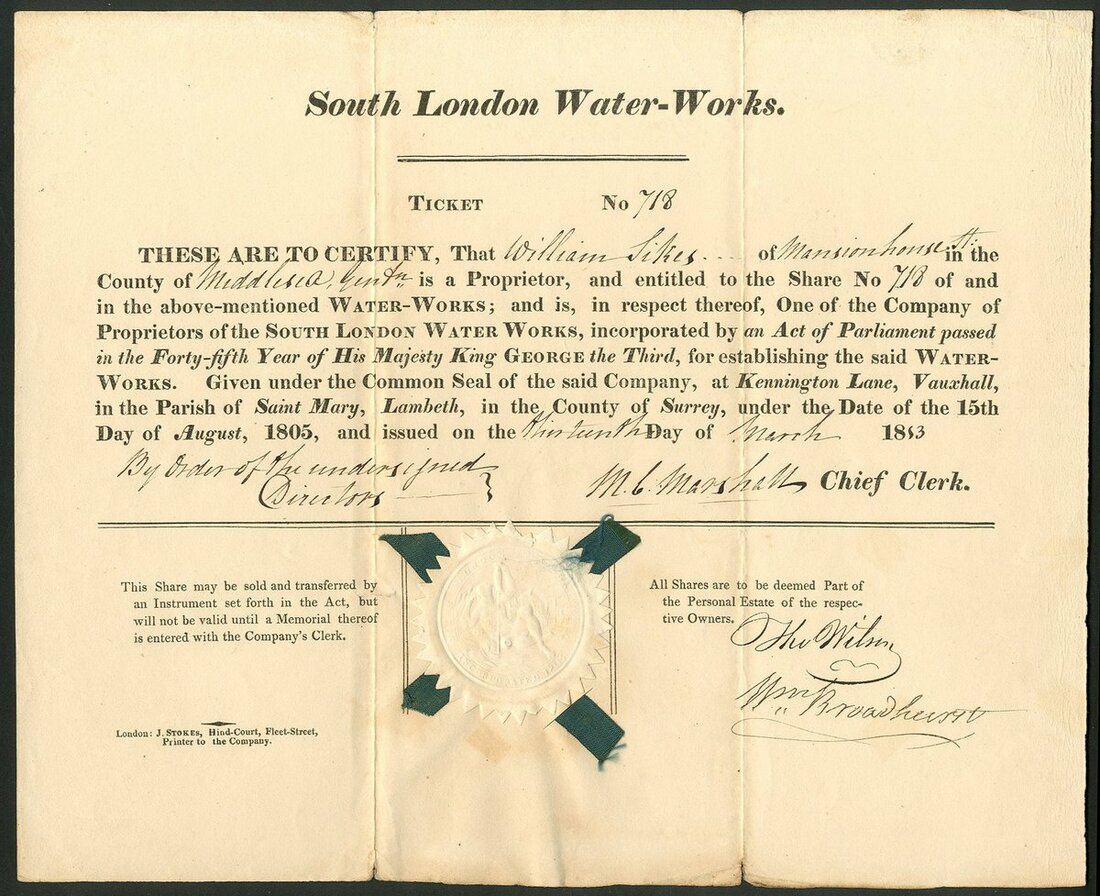 South London Water-Works.
TICKET No 718
THESE ARE TO CERTIFY, That William Sikes of Mansionhouse St. in the
County of Middlesex, Gentn is a Proprietor, and entitled to the Share No 718 of and
in the above-mentioned WATER-WORKS; and is, in respect thereof, One of the Company of
Proprietors of the SOUTH LONDON WATER WORKS, incorporated by an Act of Parliament passed
in the Forty-fifth Year of His Majesty King GEORGE the Third, for establishing the said WATER-
WORKS. Given under the Common Seal of the said Company, at Kennington Lane, Vauxhall,
in the Parish of Saint Mary, Lambeth, in the County of Surrey, under the Date of the 15th
Day of August, 1805, and issued on the thirteenth Day of March 1813
By Order of the undersigned
Directors
M. C. Marshall Chief Clerk.
This Share may be sold and transferred by
an Instrument set forth in the Act, but
will not be valid until a Memorial thereof
is entered with the Company's Clerk.
All Shares are to be deemed Part of
the Personal Estate of the respec-
tive Owners.
Tho Wilson
Wm Broadhurst
London: J. STOKES, Hind-Court, Fleet-Street,
Printer to the Company.